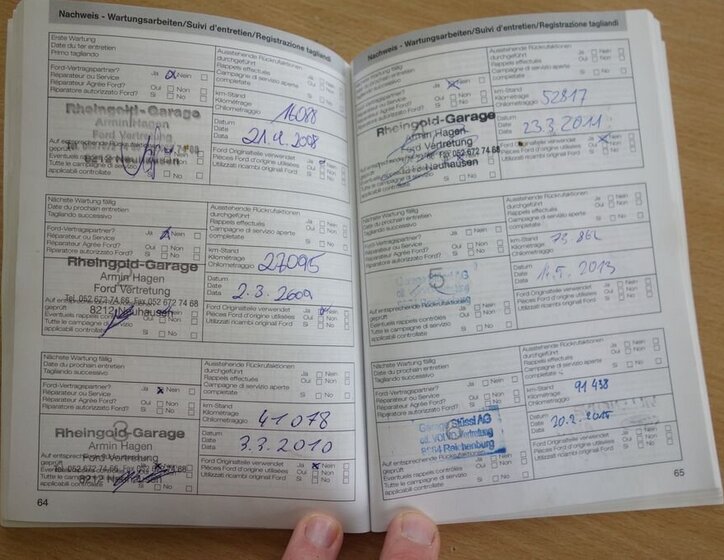 Nachweis - Wartungsarbeiten/Suivi d'entretien/Registrazione tagliandi
Erste Wartung
Date du 1er entretien
Primo tagliando
Ausstehende Rückrufaktionen
durchgeführt Ja Nein
Rappels effectués Oui Non
Campagne di servizio aperte Si No
completate
Ford-Vertragspartner? Ja Nein
Réparateur ou Service Oui Non
Réparateur Agrée Ford? Si No
Riparatore autorizzato Ford?
km-Stand
Kilométrage
Chilometraggio 16088
Rheingold-Garage
Armin Hagen
Ford Vertretung
8212 Neuhausen
Datum
Date
Data 21.4.2008
Auf entsprechende
geprüft
Eventuels
Tutte le campagne di servizio
applicabili controllate
Ford Originalteile verwendet Ja Nein
Pièces Ford d'origine utilisées Oui Non
Utilizzati ricambi original Ford Si No
Nächste Wartung fällig
Date du prochain entretien
Tagliando successivo
Ausstehende Rückrufaktionen
durchgeführt Ja Nein
Rappels effectués Oui Non
Campagne di servizio aperte Si No
completate
Ford-Vertragspartner? Ja Nein
Réparateur ou Service Oui Non
Réparateur Agrée Ford? Si No
km-Stand
Kilométrage
Chilometraggio 27095
Rheingold-Garage
Armin Hagen
Ford Vertretung
Tel. 052 672 74 66 Fax 052 672 74 68
8212 Neuhausen
Datum
Date
Data 2.3.2009
geprüft
Eventuels rappels
Tutte le campagne di servizio
applicabili controllate
Ford Originalteile verwendet Ja Nein
Pièces Ford d'origine utilisées Oui Non
Utilizzati ricambi original Ford Si No
Nächste Wartung fällig
Date du prochain entretien
Tagliando successivo
Ausstehende Rückrufaktionen
durchgeführt Ja Nein
Rappels effectués Oui Non
Campagne di servizio aperte Si No
completate
Ford-Vertragspartner? Ja Nein
Réparateur ou Service Oui Non
Réparateur Agrée Ford? Si No
Riparatore autorizzato Ford?
km-Stand
Kilométrage
Chilometraggio 41078
3
Rheingold-Garage
Armin Hagen
Ford Vertretung
Tel. 052 672 74 66 Fax 052 672 74 68
8212 Neuhausen
Datum
Date
Data 3.3.2010
Auf entsprechende
geprüft
Tutte le campagne di servizio
applicabili controllate
Ford Originalteile verwendet Ja Nein
Pièces Ford d'origine utilisées Oui Non
Utilizzati ricambi original Ford Si No
64
Nachweis - Wartungsarbeiten/Suivi d'entretien/Registrazione tagliandi
Nächste Wartung fällig
Date du prochain entretien
Tagliando successivo
Ausstehende Rückrufaktionen
durchgeführt Ja Nein
Rappels effectués Oui Non
Campagne di servizio aperte Si No
completate
Ford-Vertragspartner? Ja Nein
Réparateur ou Service Oui Non
Réparateur Agrée Ford? Si No
Riparatore autorizzato Ford?
km-Stand
Kilométrage
Chilometraggio 52817
Rheingold-Garage
Armin Hagen
Ford Vertretung
Fax 052 672 74 68
Neuhausen
Datum
Date
Data 23.3.2011
Tutte le campagne di servizio
applicabili controllate
Ford Originalteile verwendet Ja Nein
Pièces Ford d'origine utilisées Oui Non
Utilizzati ricambi original Ford Si No
Nächste Wartung fällig
Date du prochain entretien
Tagliando successivo
Ausstehende Rückrufaktionen
durchgeführt Ja Nein
Rappels effectués Oui Non
Campagne di servizio aperte Si No
completate
Ford-Vertragspartner? Ja Nein
Réparateur ou Service Oui Non
Réparateur Agrée Ford? Si No
km-Stand
Kilométrage
Chilometraggio
5
Datum
Date
Data
2013
geprüft
Eventuels rappels contrôlés
Tutte le campagne di servizio
applicabili controllate
Ford Originalteile verwendet Ja Nein
Pièces Ford d'origine utilisées Oui Non
Utilizzati ricambi original Ford Si No
Nächste Wartung fällig
Date du prochain entretien
Tagliando successivo
Ausstehende Rückrufaktionen
durchgeführt Ja Nein
Rappels effectués Oui Non
Campagne di servizio aperte Si No
completate
Ford-Vertragspartner? Ja Nein
Réparateur ou Service Oui Non
Réparateur Agrée Ford? Si No
Riparatore autorizzato Ford?
km-Stand
Kilométrage
Chilometraggio 91 438
Garage Stössl AG
Datum
Date
Data
Auf entsprechende
geprüft
Eventuels rappels contrôlés
Tutte le campagne di servizio
applicabili controllate
Ford Originalteile verwendet Ja Nein
Pièces Ford d'origine utilisées Oui Non
Utilizzati ricambi original Ford Si No
65